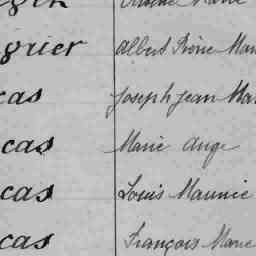 guier Albert Pierre Mar
cas Joseph Jean Mar
cas Marie Ange
cas Louis Maurice
cas François Marie